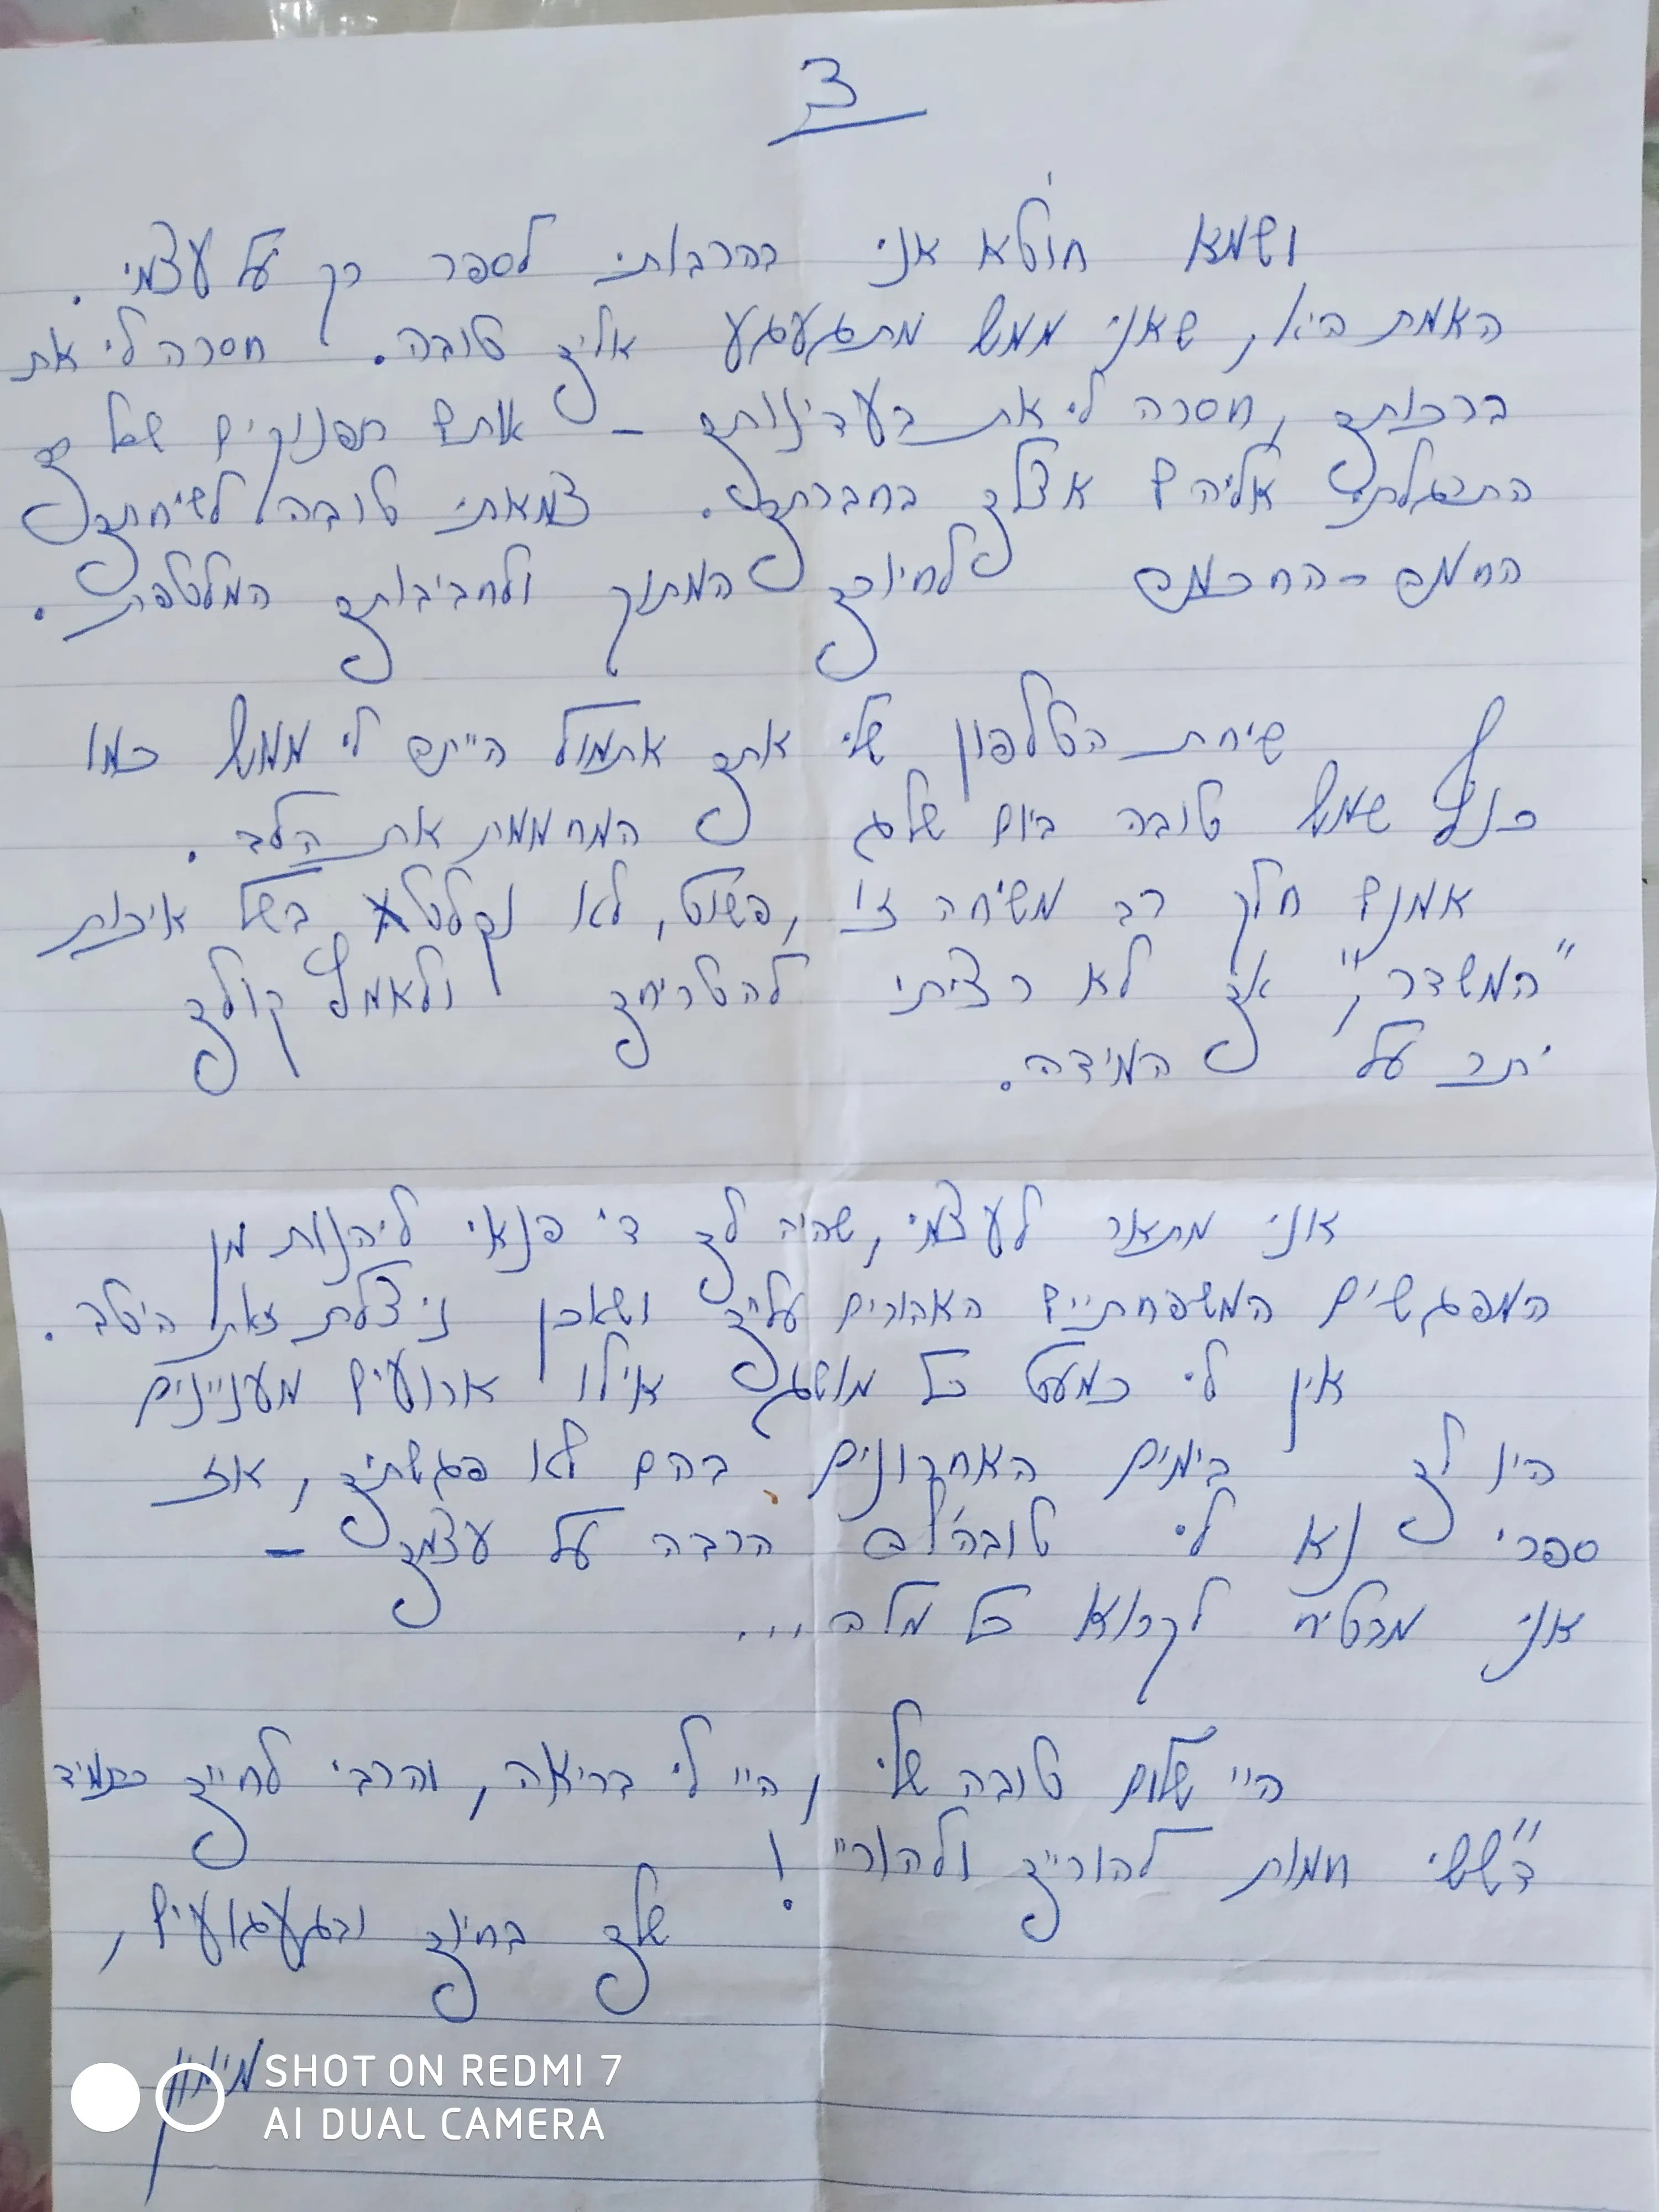 3
ושמא חוטא אני בהרבותי לספר רק על עצמי.
האמת היא, שאני ממש מתגעגע אליך טובה. חסרה לי את
ברכותך, חסרה לי את בעדינותך – אותם תפנוקים שכל כך
התרגלתי אליהם אצלך בחברתך. צמאתי טובה לשיחתך
החמה-החכמה לחיוכך המתוק ולחביבותך המלטפת.
שיחת הטלפון שלי אתך אתמול היתה לי ממש כמו
כנף שמש טובה ביום שלג המחממת את הלב.
אמנם חלק רב משיחה זו, פשוט, לא נקלט בשל איכות
"המשדר", אך לא רציתי להטריחך ולאמץ קולך
יתר על המידה.
אני מתאר לעצמי, שהיה לך די פנאי ליהנות מן
המפגשים המשפחתיים האהובים עליך ושאכן ניצלת זאת היטב.
אין לי כמעט כל מושג אילו ארועים מעניינים
היו לך בימים האחרונים בהם לא פגשתיך, אז
ספרי נא לי טובה'לה הרבה על עצמך –
אני מבטיח לקרוא כל מלה...
היי שלום טובה שלי, היי לי בריאה, והרבי לחייך כתמיד
ד"שים חמות להוריך ולהורי!
שלך בחיוך ובגעגועים,
SHOT ON REDMI 7
AI DUAL CAMERA